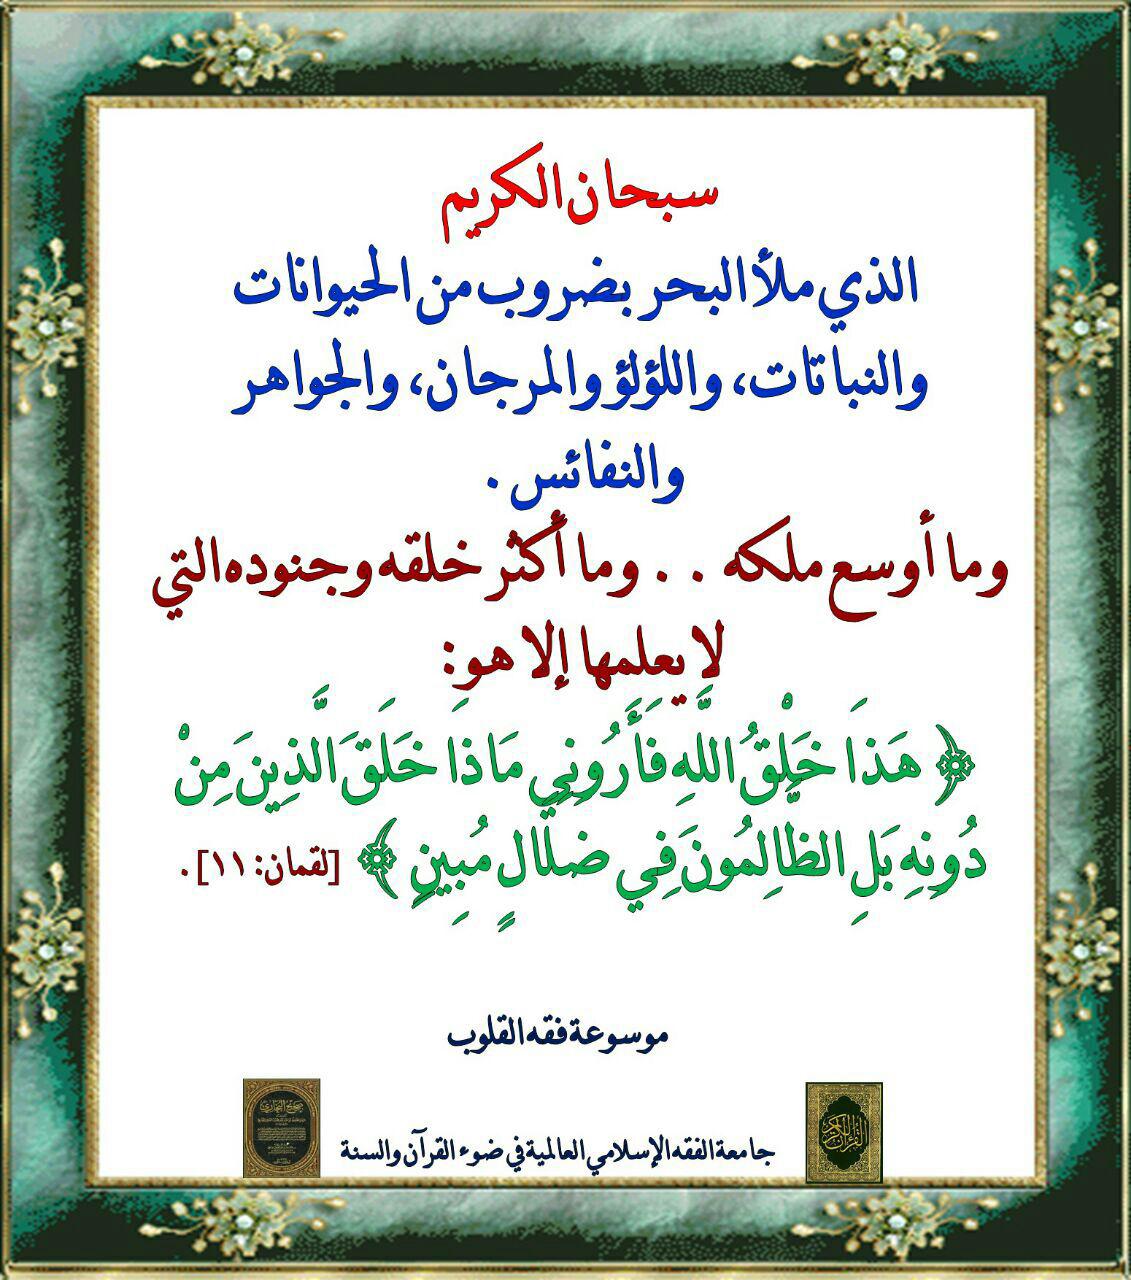 سبحان الكريم
الذي ملأ البحر بضروب من الحيوانات
والنباتات، واللؤلؤ والمرجان، والجواهر
والنفائس .
وما أوسع ملكه . . وما أكثر خلقه وجنوده التي
لا يعلمها إلا هو:
﴿ هَذَا خَلْقُ اللَّهِ فَأَرُونِي مَاذَا خَلَقَ الَّذِينَ مِنْ
دُونِهِ بَلِ الظَّالِمُونَ فِي ضَلَالٍ مُبِينٍ ﴾ [لقمان: ١١] .
موسوعة فقه القلوب
صحيح البخاري
القرآن الكريم
جامعة الفقه الإسلامي العالمية في ضوء القرآن والسنة